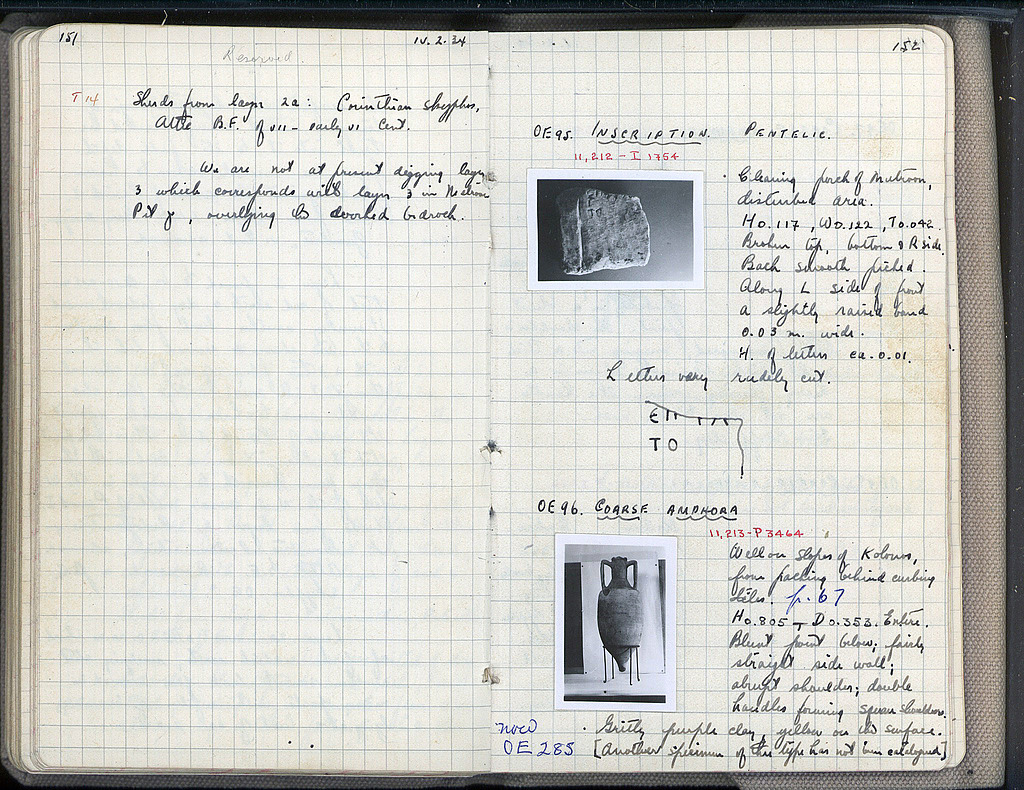 151
10.2.34
Reserved.
T 14
Sherds from layer 2a: Corinthian skyphos,
Attic B.F. of VII – early VI Cent.
We are not at present digging layer
3 which corresponds with layer 3 in Metroon
Pit γ, overlying worked bedrock.
152
OE95. INSCRIPTION. PENTELIC.
11,212 – I 1754
Cleaning porch of Metroon,
disturbed area.
H 0.117, W 0.122, T 0.042.
Broken top, bottom & R side.
Back smooth picked.
Along L side of front
a slightly raised band
0.03 m. wide.
H. of letters ca. 0.01.
Letters very rudely cut.
ΤΟ
OE96. COARSE AMPHORA
11,213 – P 3464
Well on slopes of Kolonos,
from packing behind curbing
tiles. p. 67
H 0.805 – D 0.353. Entire.
Blunt point below; fairly
straight side wall;
abrupt shoulder; double
handles forming square shoulders.
Gritty purple clay, yellow on surface.
now
OE 285
[Another specimen of this type has not been catalogued]